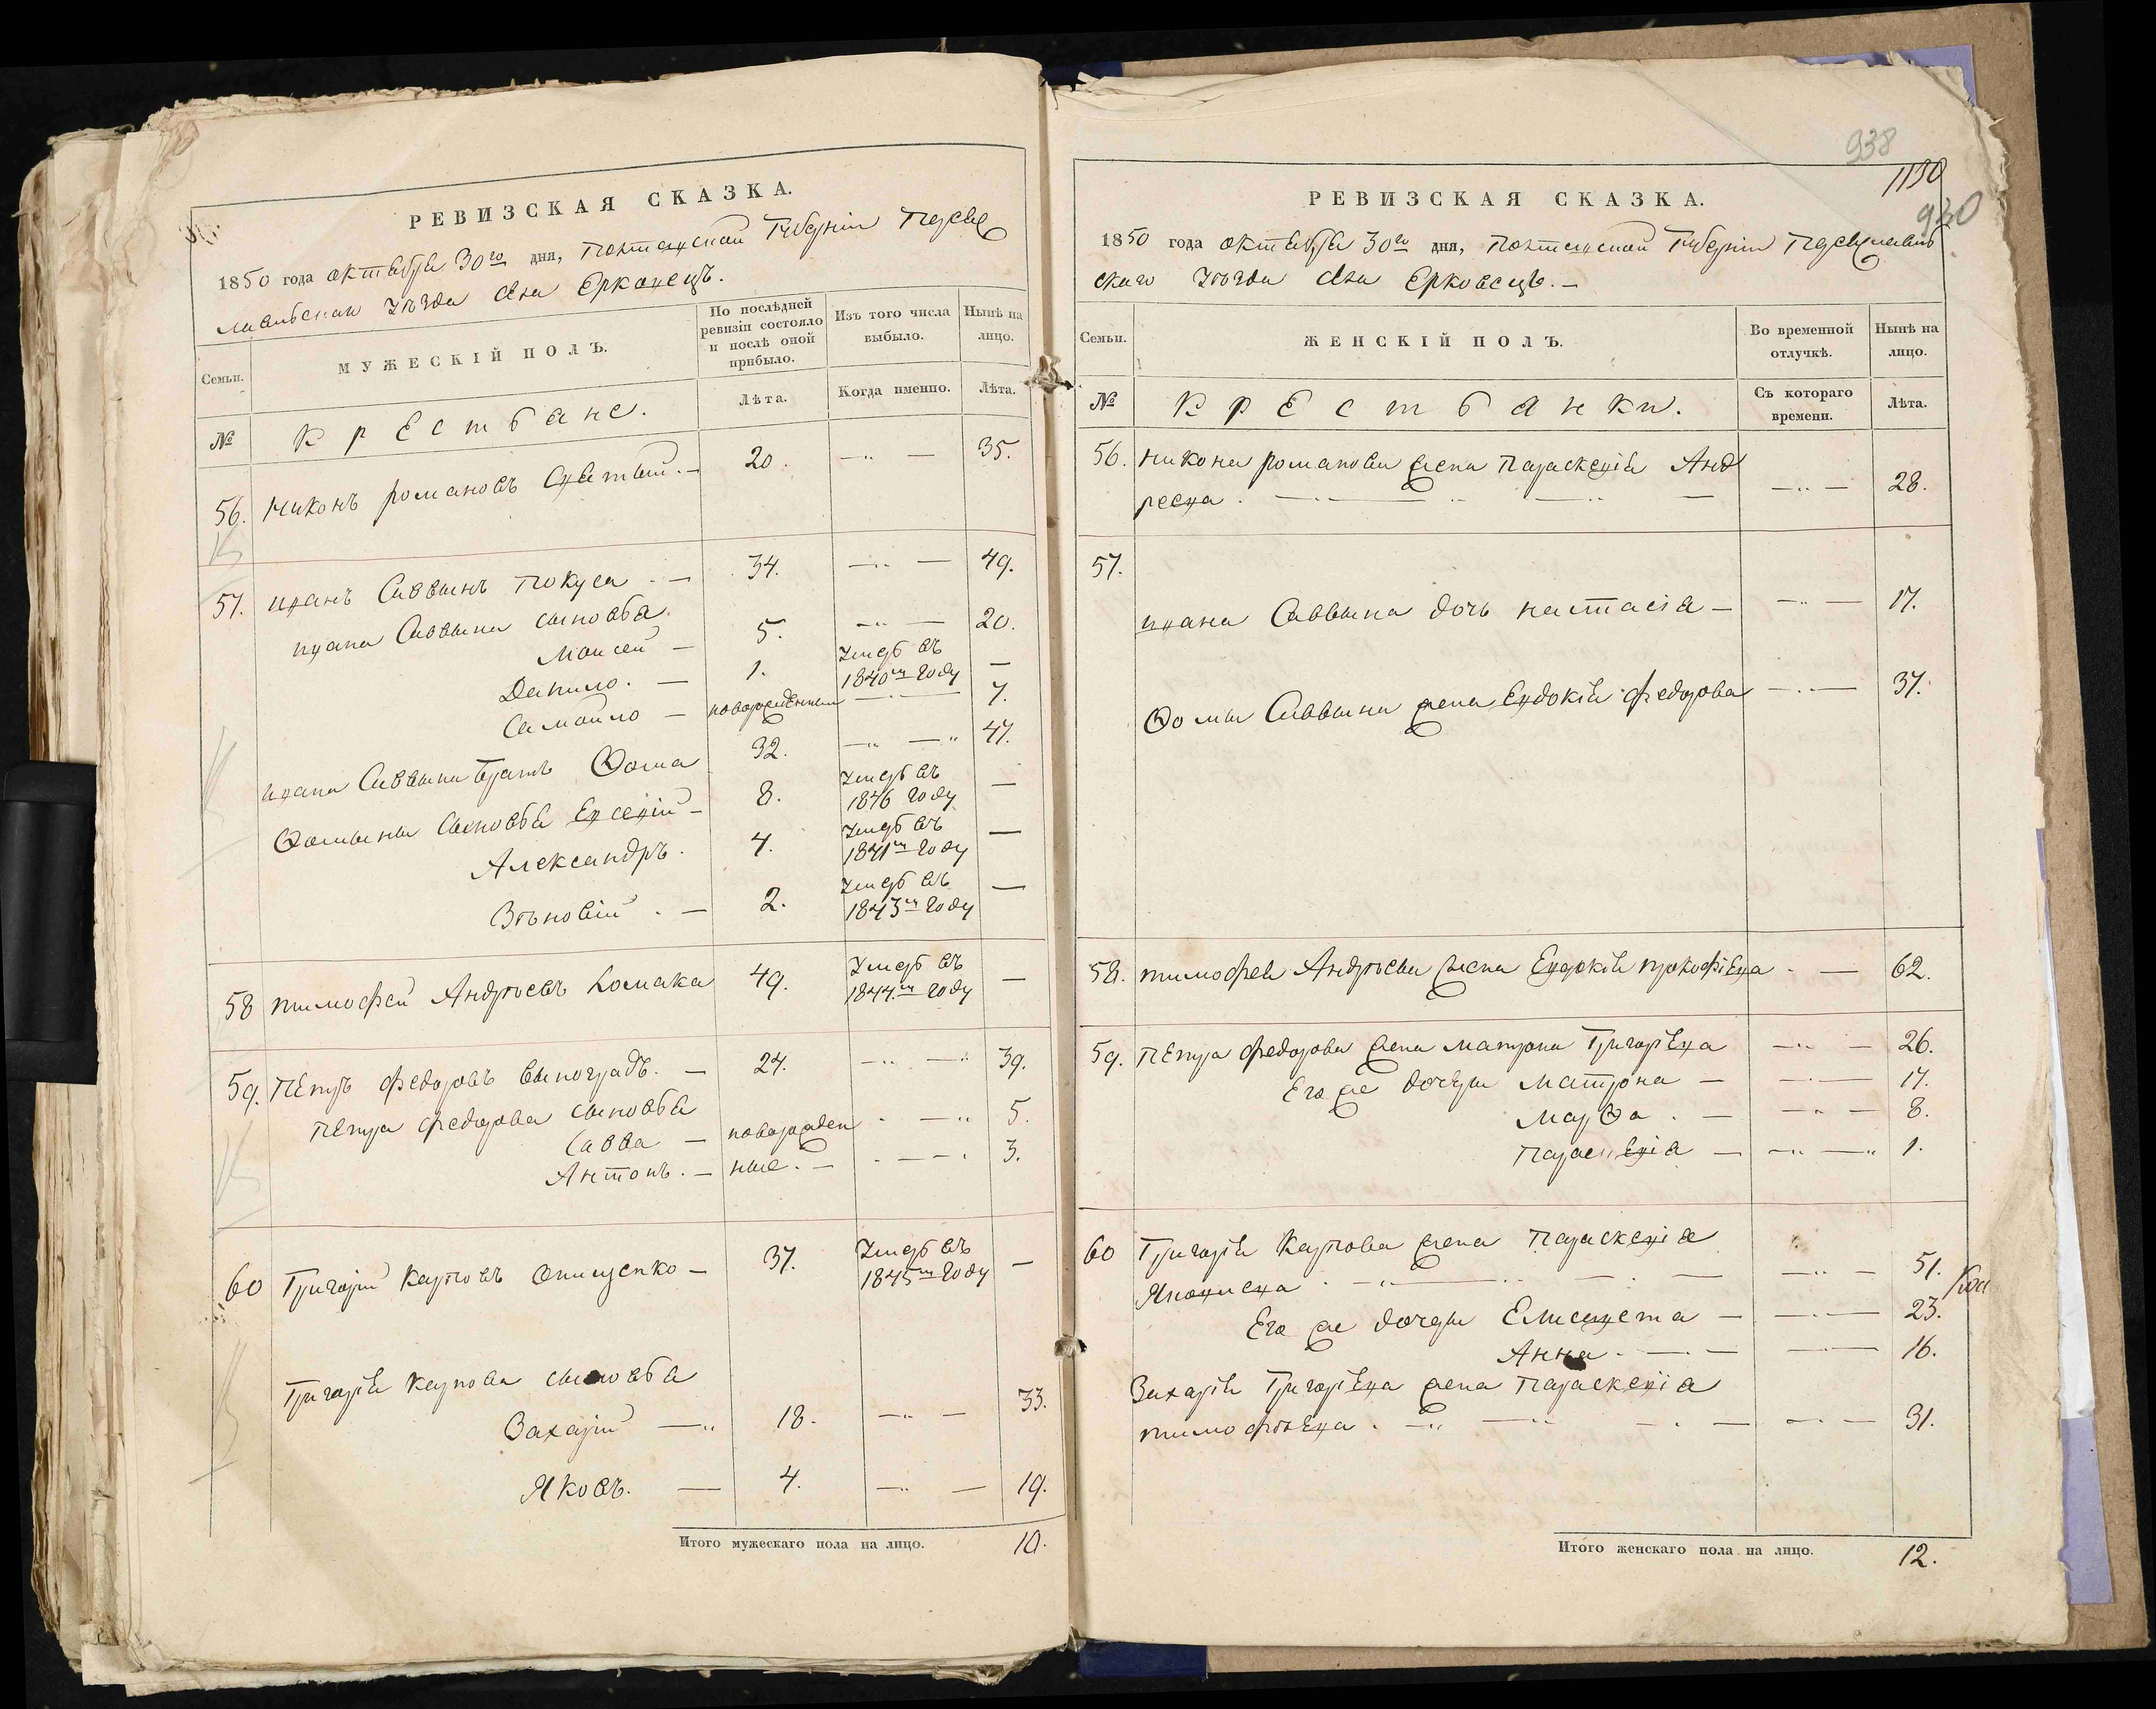 РЕВИЗСКАЯ СКАЗКА.
1850 года октября 30го дня, Полтавской Губерніи Переяс
лавскаго Уѣзда села Ерковецъ.
Семьи.
МУЖЕСКІЙ ПОЛЪ.
По послѣдней ревизіи состояло и послѣ оной прибыло.
Изъ того числа выбыло.
Нынѣ на лицо.
№
Крестьяне.
Лѣта.
Когда именно.
Лѣта.
56. Никонъ Романовъ Святый. — 20. — 35.
57. Иванъ Саввинъ Покуса — 34. — 49.
Ивана Саввина сыновья
Моисей — 5. — 20.
Данило. — 1. Умеръ въ 1840м году —
Самойло — новорожденный — 7.
Ивана Саввина братъ Ѳома 32. — 47.
Ѳомины сыновья Евсевій — 8. Умеръ въ 1846 году —
Александръ. 4. Умеръ въ 1841м году —
Зѣновій. — 2. Умеръ въ 1843м году —
58 Тимофей Андрѣевъ 49. Умеръ въ 1844м году —
59. Петръ Федоровъ Выноградъ. — 24. — 39.
Петра Федорова сыновья
Савва — новорожден — 5.
Антонъ. — ные. — 3.
60 Григорій Карповъ Онищенко — 37. Умеръ въ 1845м году —
Григорія Карпова сыновья
Захарій — 18. — 33.
Яковъ. — 4. — 19.
Итого мужескаго пола на лицо. 10.
938
1130
930
РЕВИЗСКАЯ СКАЗКА.
1850 года октября 30го дня, Полтавской Губерніи Переяславь
скаго Уѣзда села Ерковецъ. —
Семьи.
ЖЕНСКІЙ ПОЛЪ.
Во временной отлучкѣ.
Нынѣ на лицо.
№
Крестьянки.
Съ котораго времени.
Лѣта.
56. Никона Романова жена Параскевія Анд
реева. — 28.
57.
Ивана Саввина дочь Настасія — 17.
Ѳомы Саввина жена Евдокія Федорова — 37.
58. Тимофея Андрѣева жена Евдокія Прокофіева — 62.
59. Петра Федорова жена Матрона Григоріева — 26.
Его же дочери Матрона — 17.
Марѳа. — 8.
Параскевія — 1.
60 Григорія Карпова жена Параскевія
51.
Его же дочери Елисавета — 23.
Анна. — 16.
Захарія Григоріева жена Параскевія
Тимофѣева. — 31.
Итого женскаго пола на лицо. 12.